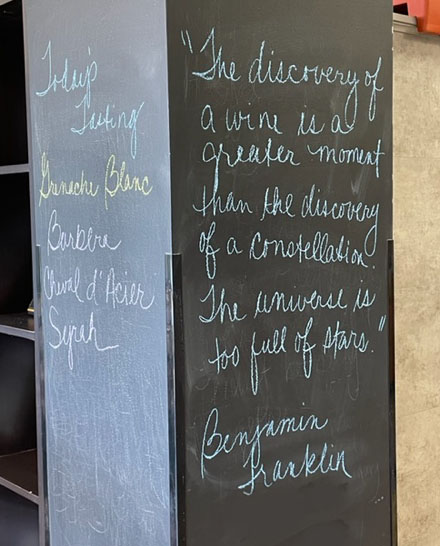 Today's
Tasting
Grenache Blanc
Barbera
Cheval d'Acier
Syrah
"The discovery of
a wine is a
greater moment
than the discovery
of a constellation.
The universe is
too full of stars."
Benjamin
Franklin